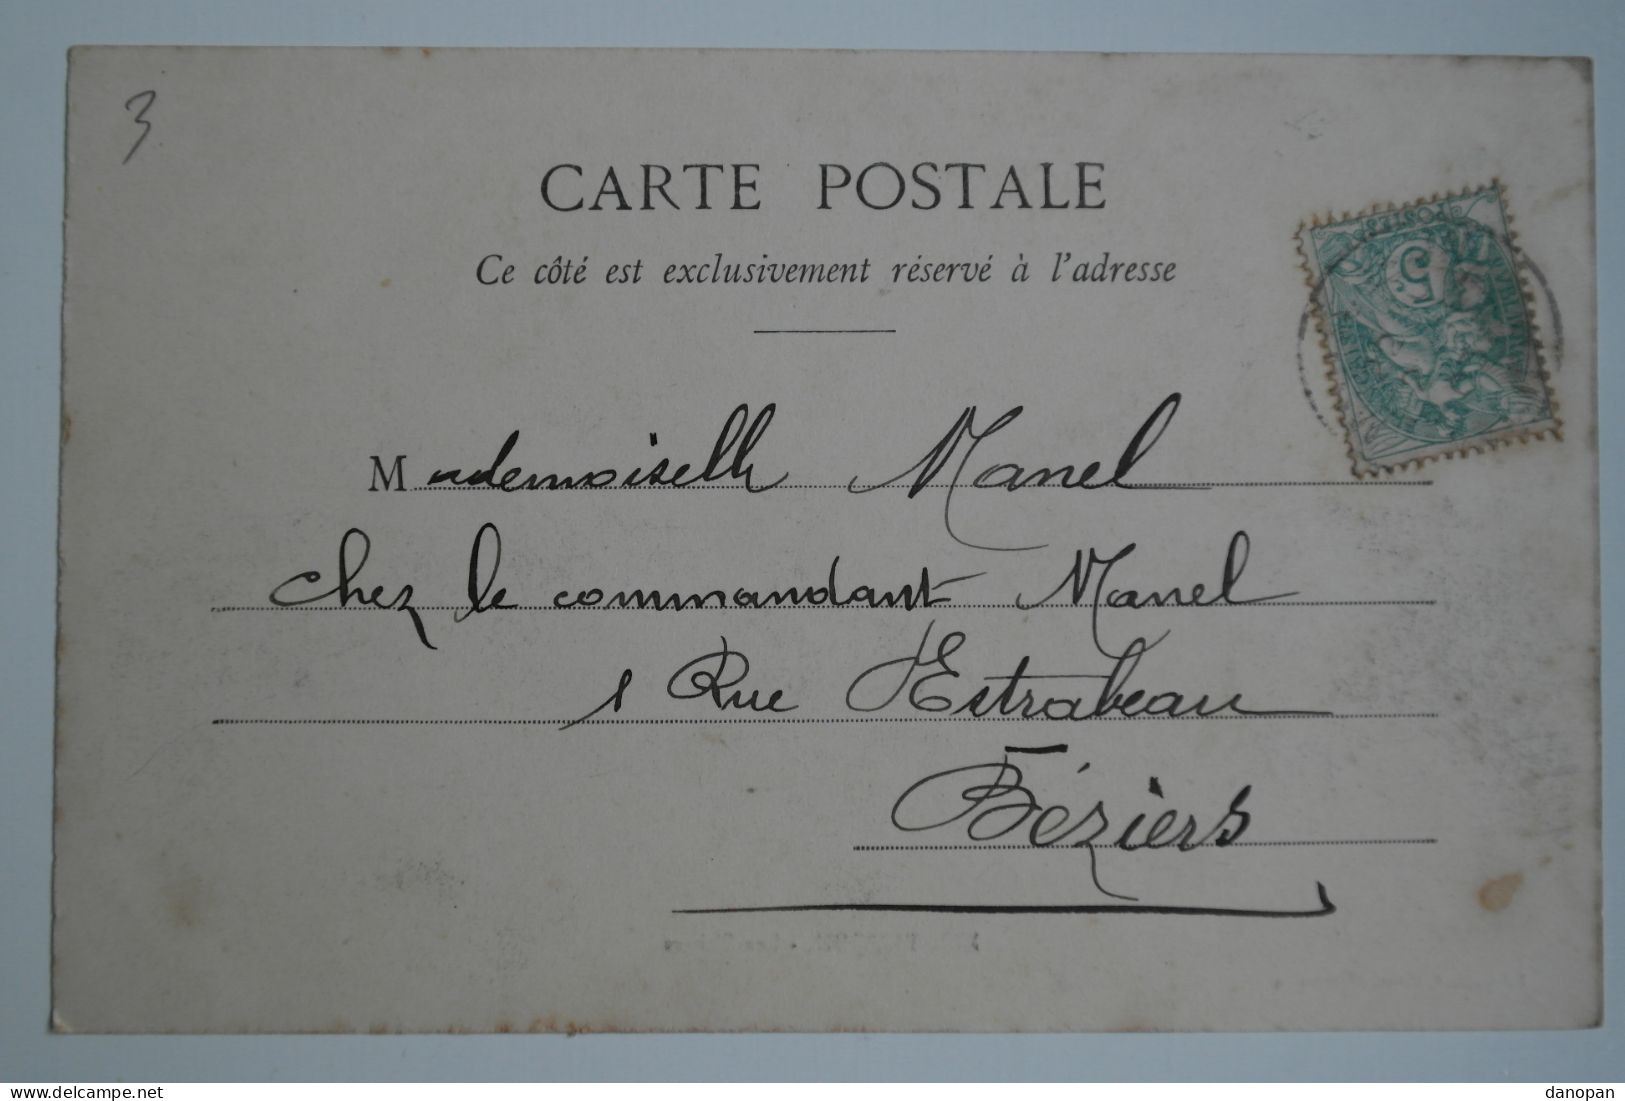 3
CARTE POSTALE
Ce côté est exclusivement réservé à l'adresse
POSTES
5
Mademoiselle Manel
chez le commandant Manel
1 Rue Estrabeau
Béziers
www.delcampe.net
danopan